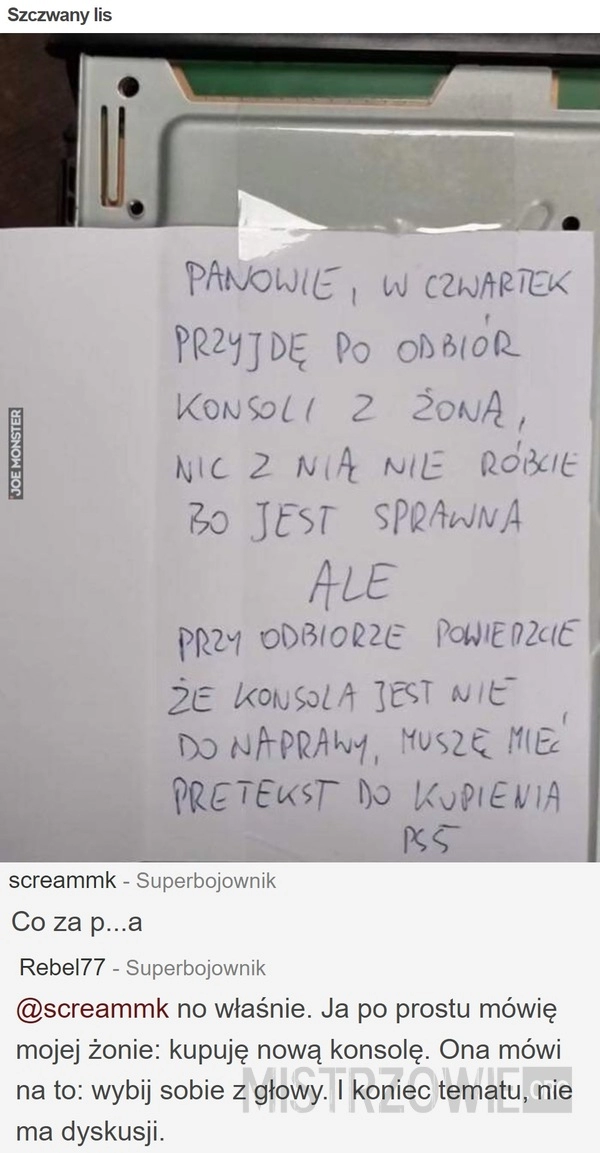 Szczwany lis
PANOWIE, W CZWARTEK
PRZYJDĘ PO ODBIÓR
KONSOLI Z ŻONĄ,
NIC Z NIĄ NIE RÓBCIE
BO JEST SPRAWNA
ALE
PRZY ODBIORZE POWIEDZCIE
ŻE KONSOLA JEST NIE
DO NAPRAWY, MUSZĘ MIEĆ
PRETEKST DO KUPIENIA
PS5
JOE MONSTER
screammk - Superbojownik
Co za p...a
Rebel77 - Superbojownik
@screammk no właśnie. Ja po prostu mówię
mojej żonie: kupuję nową konsolę. Ona mówi
na to: wybij sobie z głowy. I koniec tematu, nie
ma dyskusji.
MISTRZOWIE.ORG